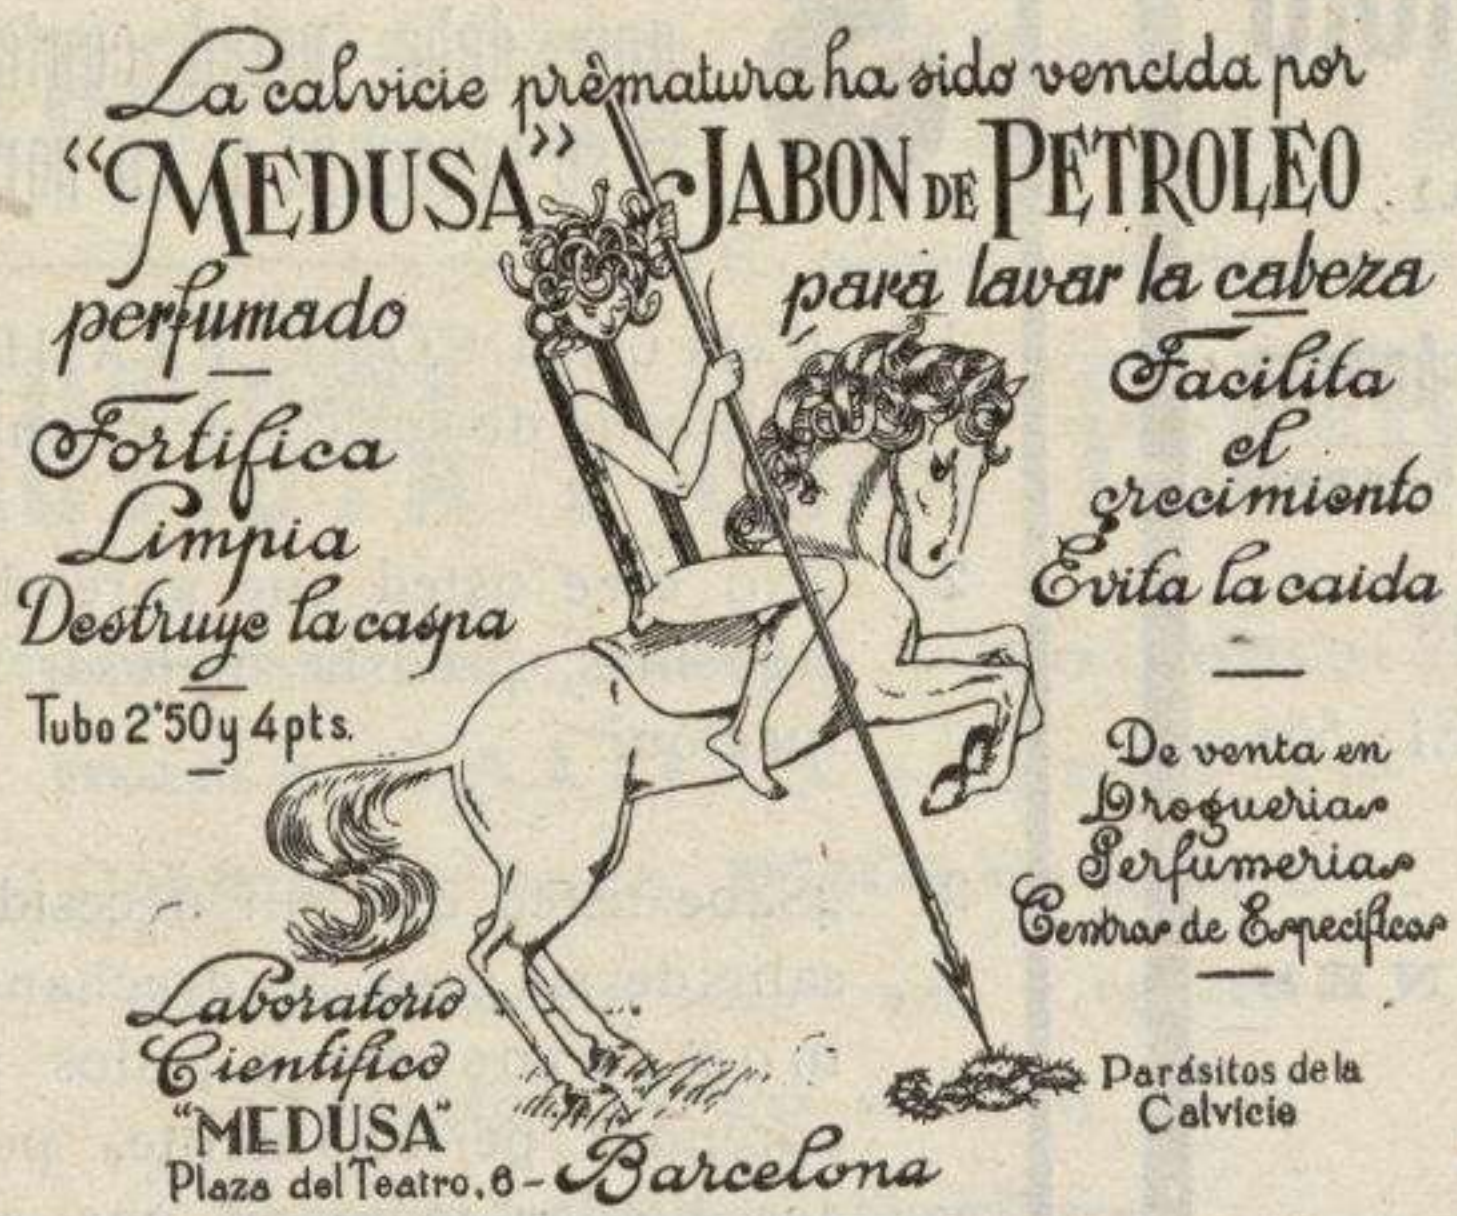 La calvicie prematura ha sido vencida por
"MEDUSA" JABON DE PETROLEO
perfumado
para lavar la cabeza
Fortifica
Limpia
Destruye la caspa
Tubo 2'50 y 4 pts.
Facilita
el
crecimiento
Evita la caida
De venta en
Droguerias
Perfumerias
Centros de Especificos
Laboratorio
Cientifico
"MEDUSA"
Plaza del Teatro, 6 - Barcelona
Parásitos de la
Calvicie